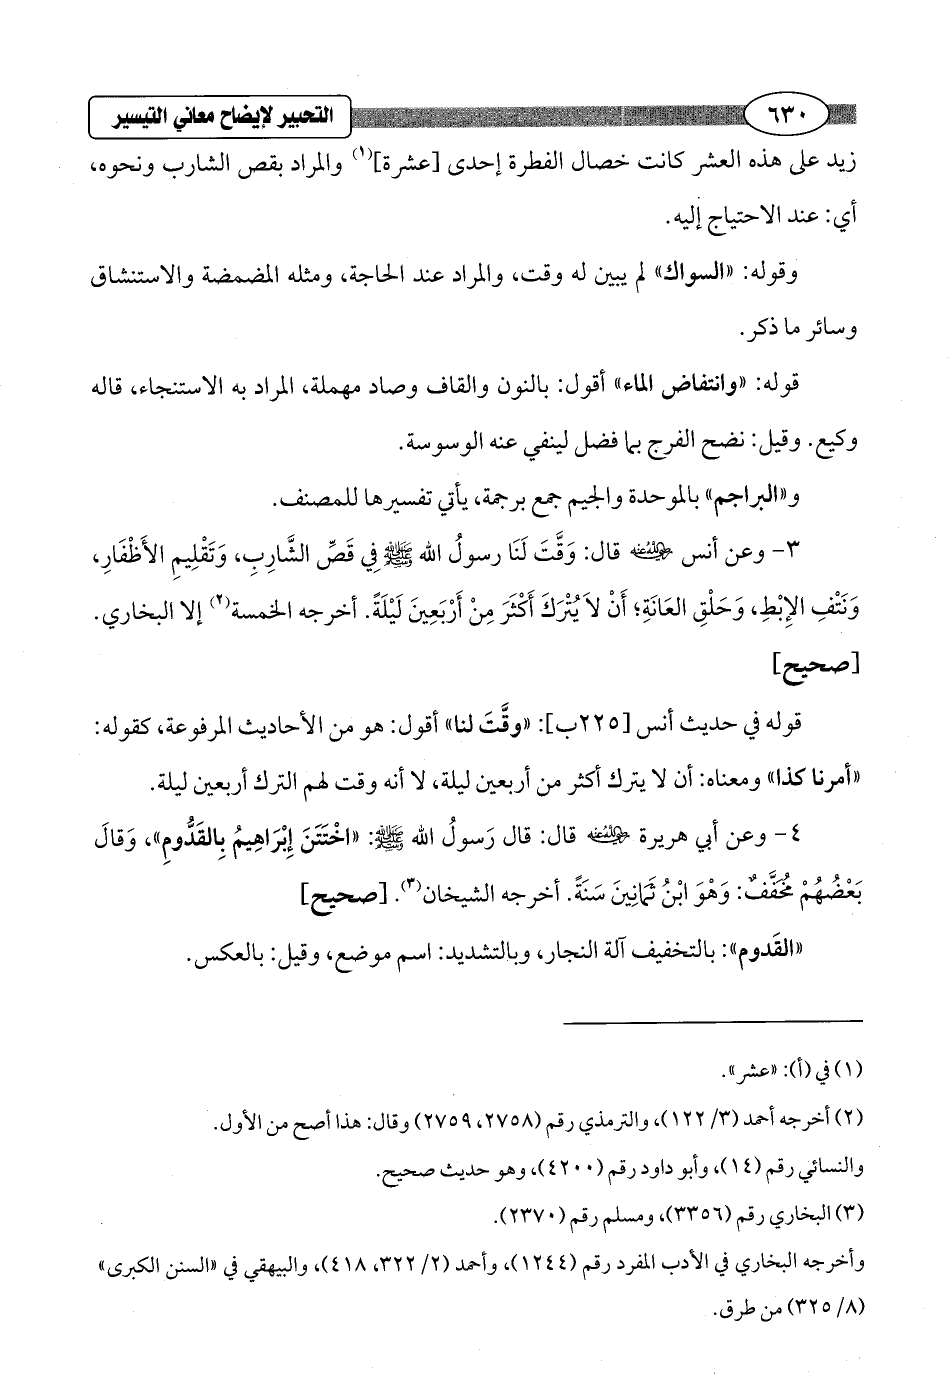 ٦٣٠ التحبير لإيضاح معاني التيسير
زيد على هذه العشر كانت خصال الفطرة إحدى [عشرة](١) والمراد بقص الشارب ونحوه،
أي: عند الاحتياج إليه.
وقوله: «السواك» لم يبين له وقت، والمراد عند الحاجة، ومثله المضمضة والاستنشاق
وسائر ما ذكر.
قوله: «وانتفاض الماء» أقول: بالنون والقاف وصاد مهملة، المراد به الاستنجاء، قاله
وكيع. وقيل: نضح الفرج بما فضل لينفي عنه الوسوسة.
و«البراجم» بالموحدة والجيم جمع برجمة، يأتي تفسيرها للمصنف.
٣- وعن أنس رضي الله عنه قال: وَقَّتَ لَنَا رسولُ الله ﷺ فِي قَصِّ الشَّارِبِ، وَتَقْلِيمِ الأَظْفَارِ،
وَنَتْفِ الإِبْطِ، وَحَلْقِ العَانَةِ؛ أَنْ لاَ يُتْرَكَ أَكْثَرَ مِنْ أَرْبَعِينَ لَيْلَةً. أخرجه الخمسة(٢) إلا البخاري.
[صحيح]
قوله في حديث أنس [٢٢٥ب]: «وقَّتَ لنا» أقول: هو من الأحاديث المرفوعة، كقوله:
«أمرنا كذا» ومعناه: أن لا يترك أكثر من أربعين ليلة، لا أنه وقت لهم الترك أربعين ليلة.
٤- وعن أبي هريرة رضي الله عنه قال: قال رَسولُ الله ﷺ: «اخْتَتَنَ إِبْرَاهِيمُ بِالقَدُّومِ»، وَقالَ
بَعْضُهُمْ مُخَفَّفٌ: وَهْوَ ابْنُ ثَمَانِينَ سَنَةً. أخرجه الشيخان(٣). [صحيح]
«القَدوم»: بالتخفيف آلة النجار، وبالتشديد: اسم موضع، وقيل: بالعكس.
(١) في (أ): «عشر».
(٢) أخرجه أحمد (٣/ ١٢٢)، والترمذي رقم (٢٧٥٨، ٢٧٥٩) وقال: هذا أصح من الأول.
والنسائي رقم (١٤)، وأبو داود رقم (٤٢٠٠)، وهو حديث صحيح.
(٣) البخاري رقم (٣٣٥٦)، ومسلم رقم (٢٣٧٠).
وأخرجه البخاري في الأدب المفرد رقم (١٢٤٤)، وأحمد (٢/ ٣٢٢، ٤١٨)، والبيهقي في «السنن الكبرى»
(٨/ ٣٢٥) من طرق.